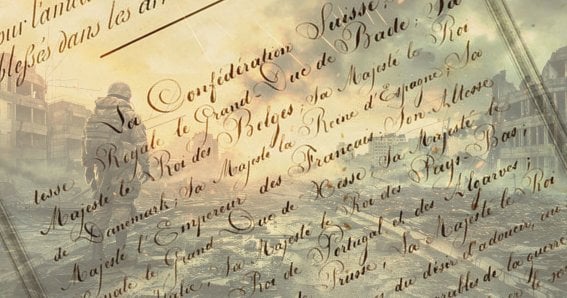 our l'am
blessés dans les ar
La Confédération Suisse;
tesse Royale le Grand-Duc de Bade; Sa
Majesté le Roi des Belges; Sa Majesté le Roi
de Danemark; Sa Majesté la Reine d'Espagne; Sa
Majesté l'Empereur des Français; Son Altesse
yale le Grand Duc de Hesse; Sa Majesté le
talie; Sa Majesté le Roi des Pays-Bas;
Roi de Portugal et des Algarves;
Prusse, Sa Majesté le Roi
du désir d'adoucir,
de la guerre